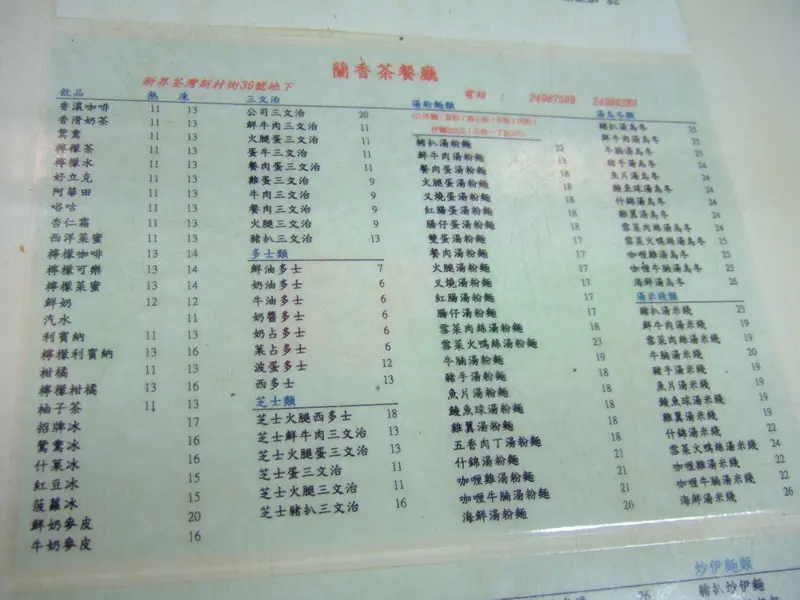 蘭香茶餐廳
新界荃灣新村街36號地下
電話 :
飲品 熱 凍
香濃咖啡 11 13
香滑奶茶 11 13
鴛鴦 11 13
檸檬茶 11 13
檸檬水 11 13
好立克 11 13
阿華田 11 13
唂咕 11 13
杏仁霜 11 13
西洋菜蜜 11 13
檸檬咖啡 13 14
檸檬可樂 13 14
檸檬菜蜜 13 14
鮮奶 12 12
汽水 11
利賓納 11 13
檸檬利賓納 13 16
柑橘 11 13
檸檬柑橘 13 16
柚子茶 11 13
招牌冰 17
鴛鴦冰 16
什菓冰 16
紅豆冰 15
菠蘿冰 15
鮮奶麥皮 20
牛奶麥皮 16
三文治
公司三文治 20
鮮牛肉三文治 11
火腿蛋三文治 11
蛋牛三文治 11
餐肉蛋三文治 11
雞蛋三文治 9
牛肉三文治 9
餐肉三文治 9
火腿三文治 9
豬扒三文治 13
多士類
鮮油多士 7
奶油多士 6
牛油多士 6
奶醬多士 6
奶占多士 6
菓占多士 6
波蛋多士 12
西多士 13
芝士類
芝士火腿西多士 18
芝士鮮牛肉三文治 13
芝士火腿蛋三文治 13
芝士蛋三文治 11
芝士火腿三文治 11
芝士豬扒三文治 16
湯粉麵類
豬扒湯粉麵 22
鮮牛肉湯粉麵 18
餐肉蛋湯粉麵 18
火腿蛋湯粉麵 18
叉燒蛋湯粉麵 18
紅腸蛋湯粉麵 18
腸仔蛋湯粉麵 18
雙蛋湯粉麵 17
餐肉湯粉麵 17
火腿湯粉麵 17
叉燒湯粉麵 17
紅腸湯粉麵 17
腸仔湯粉麵 17
雪菜肉絲湯粉麵 18
雪菜火鴨絲湯粉麵 23
牛腩湯粉麵 19
豬手湯粉麵 18
魚片湯粉麵 18
鯪魚球湯粉麵 18
雞翼湯粉麵 18
五香肉丁湯粉麵 18
什錦湯粉麵 21
咖喱雞湯粉麵 21
咖喱牛腩湯粉麵 21
海鮮湯粉麵 26
湯烏冬類
豬扒湯烏冬 25
鮮牛肉湯烏冬 25
牛腩湯烏冬 25
豬手湯烏冬 24
魚片湯烏冬 24
鯪魚球湯烏冬 24
什錦湯烏冬 24
雞翼湯烏冬 24
雪菜肉絲湯烏冬 24
雪菜火鴨絲湯烏冬 25
咖喱雞湯烏冬 25
咖喱牛腩湯烏冬 25
海鮮湯烏冬 26
湯米綫類
豬扒湯米綫 23
鮮牛肉湯米綫 19
雪菜肉絲湯米綫 19
牛腩湯米綫 20
豬手湯米綫 19
魚片湯米綫 19
鯪魚球湯米綫 19
雞翼湯米綫 19
什錦湯米綫 22
雪菜火鴨絲湯米綫 24
咖喱雞湯米綫 22
咖喱牛腩湯米綫 22
海鮮湯米綫 26
炒伊麵類
26 豬扒炒伊麵